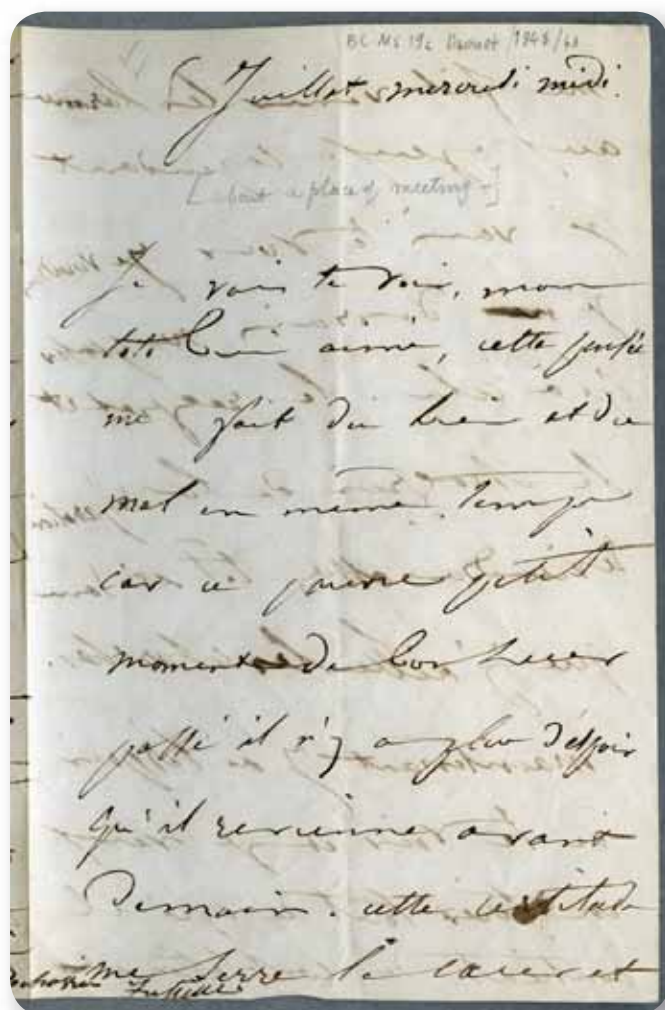 BC MS 19c Drouet /1848/
6 Juillet mercredi midi.
[about a place of meeting -]
Je vais te voir, mon
toto bien aimé, cette pensée
me fait du bien et du
mal en même temps
car ce pauvre petit
moment de bonheur
passé il n'y a plus d'espoir
qu'il revienne avant
Demain. cette certitude
me serre le cœur et